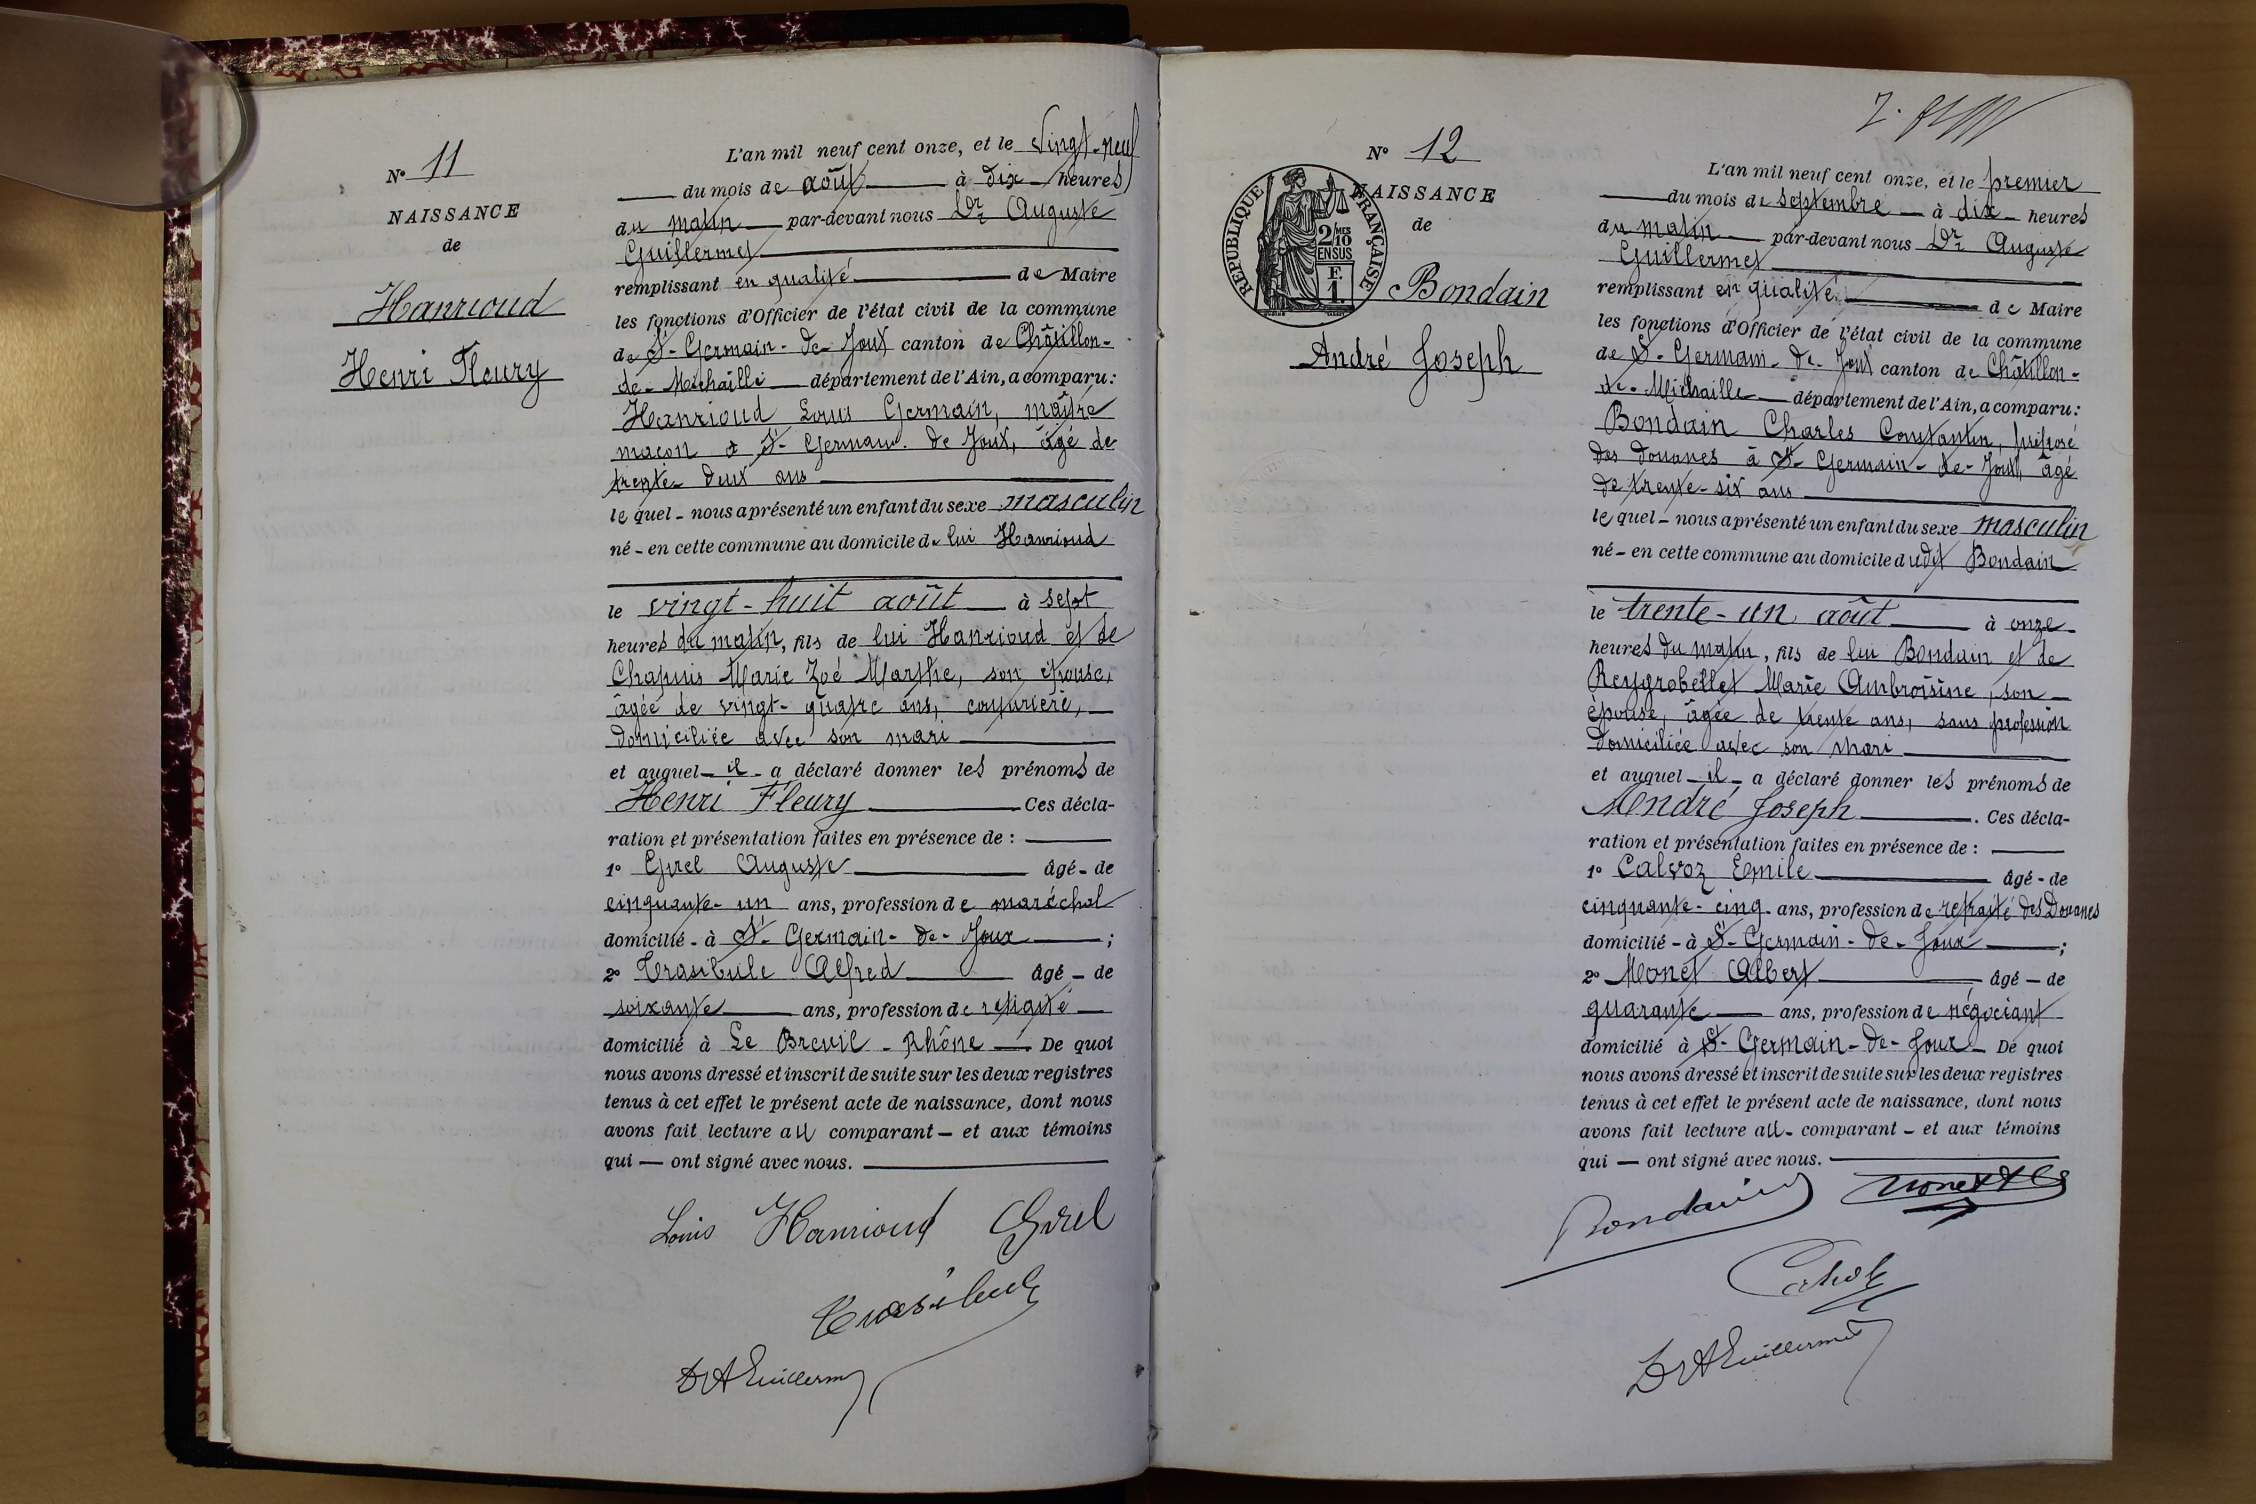 N° 11
NAISSANCE
de
Hanrioud
Henri Fleury
L'an mil neuf cent onze, et le Vingt-neuf
du mois de août à dix heures
du matin par-devant nous Dr Auguste
Guillermet
remplissant en qualité de Maire
les fonctions d'Officier de l'état civil de la commune
de St-Germain-de-Joux canton de Châtillon-
de-Michaille département de l'Ain, a comparu:
Hanrioud Louis Germain, maître
maçon à St-Germain-de-Joux, âgé de
trente-deux ans
le quel - nous a présenté un enfant du sexe masculin
né - en cette commune au domicile de lui Hanrioud
le vingt-huit août à sept
heures du matin, fils de lui Hanrioud et de
Chapuis Marie Zoé Marthe, son épouse,
âgée de vingt-quatre ans, couturière,
domiciliée avec son mari
et auquel - il - a déclaré donner les prénoms de
Henri Fleury Ces décla-
ration et présentation faites en présence de :
1° Gurel Auguste âgé - de
cinquante-un ans, profession de maréchal
domicilié - à St-Germain-de-Joux ;
2° Trasibule Alfred âgé - de
soixante ans, profession de
domicilié à Le Breuil - Rhône De quoi
nous avons dressé et inscrit de suite sur les deux registres
tenus à cet effet le présent acte de naissance, dont nous
avons fait lecture au comparant - et aux témoins
qui - ont signé avec nous.
Louis Hanrioud Gurel
Trasibule
Dr A Guillermet
N° 12
NAISSANCE
de
RÉPUBLIQUE FRANÇAISE
2/10 MES
EN SUS
F.
1.
Bondain
André Joseph
L'an mil neuf cent onze, et le premier
du mois de septembre à dix heures
du matin par-devant nous Dr Auguste
Guillermet
remplissant en qualité de Maire
les fonctions d'Officier de l'état civil de la commune
de St-Germain-de-Joux canton de Châtillon-
de-Michaille département de l'Ain, a comparu:
Bondain Charles Constantin, préposé
des douanes à St-Germain-de-Joux, âgé
de trente-six ans
le quel - nous a présenté un enfant du sexe masculin
né - en cette commune au domicile dudit Bondain
le trente-un août à onze
heures du matin, fils de lui Bondain et de
Reygrobellet Marie Ambroisine, son
épouse, âgée de trente ans, sans profession
domiciliée avec son mari
et auquel - il - a déclaré donner les prénoms de
André Joseph. Ces décla-
ration et présentation faites en présence de :
1° Calvoz Emile âgé - de
cinquante-cinq ans, profession de retraité des Douanes
domicilié - à St-Germain-de-Joux ;
2° Monet Albert âgé - de
quarante ans, profession de négociant
domicilié à St-Germain-de-Joux - De quoi
nous avons dressé et inscrit de suite sur les deux registres
tenus à cet effet le présent acte de naissance, dont nous
avons fait lecture au - comparant - et aux témoins
qui - ont signé avec nous.
Bondain Monet
Calvoz
Dr A Guillermet